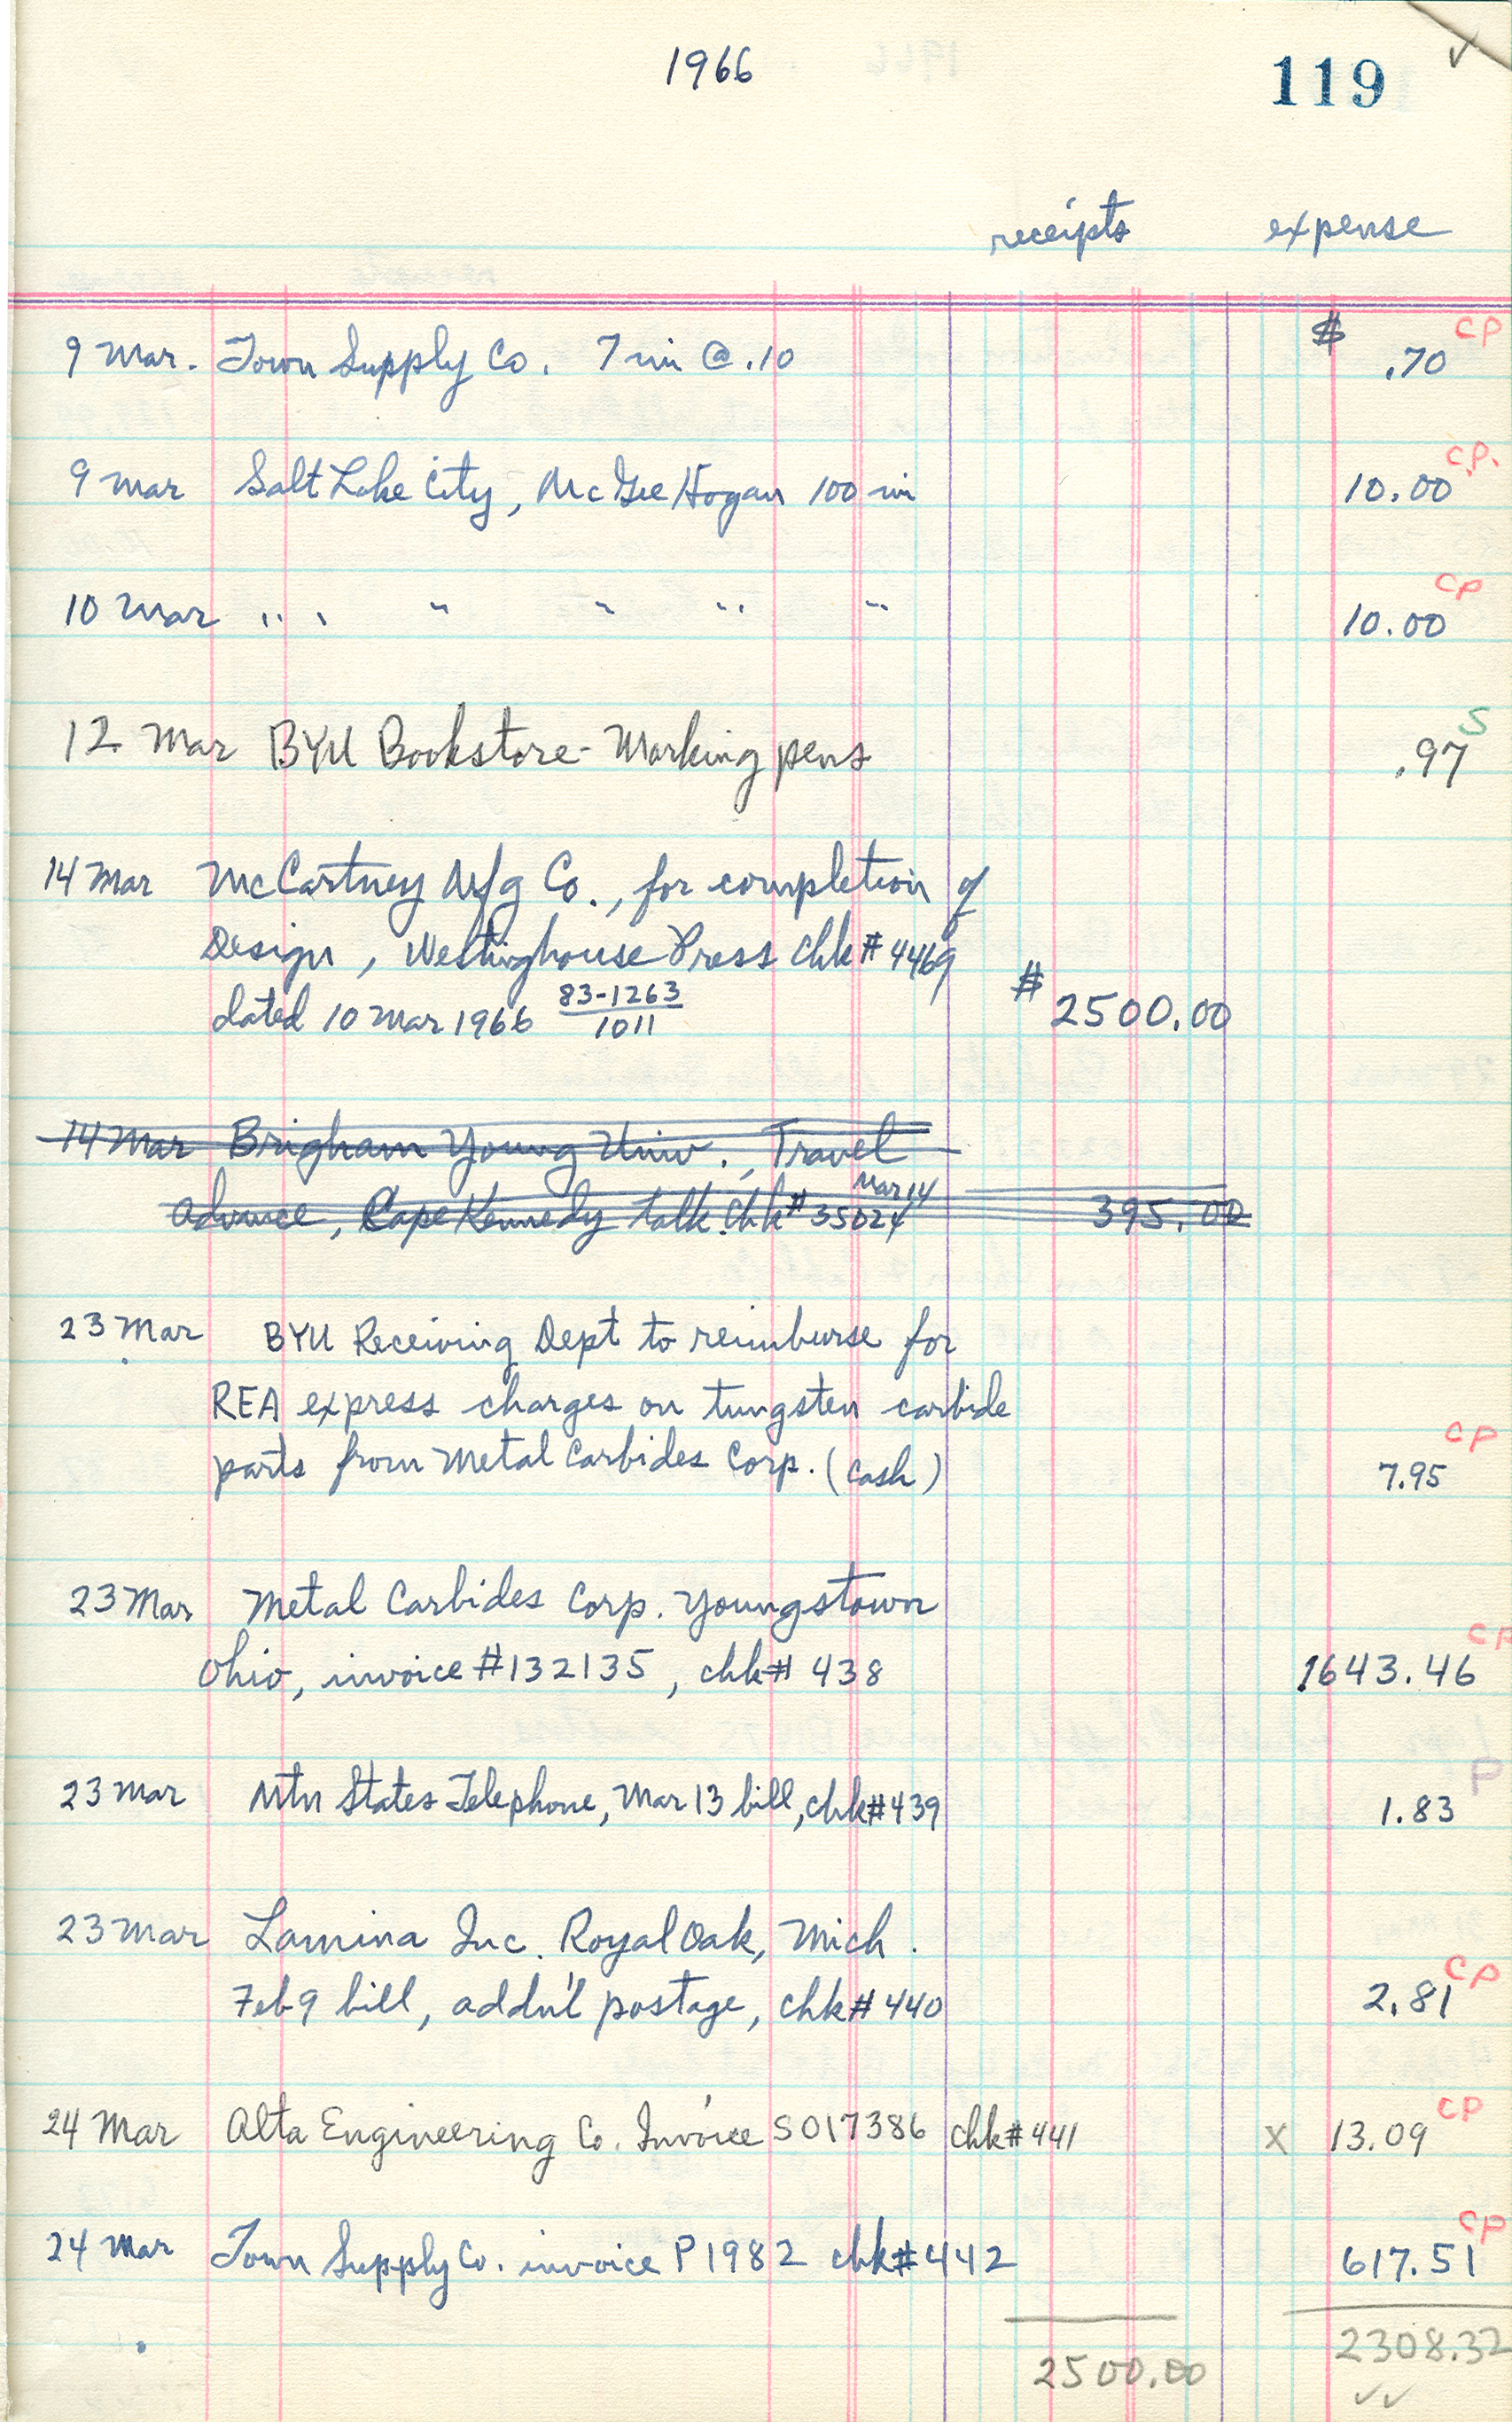 1966
119
✓
receipts expense
9 Mar. Town Supply Co. 7 mi @ .10 $ .70 CP
9 Mar Salt Lake City, McGee Hogan 100 mi 10.00 CP.
10 Mar " " " " " 10.00 CP
12 Mar BYU Bookstore - Marking pens .97 S
14 Mar McCartney Mfg Co., for completion of
Design, Westinghouse Press chk # 4469
dated 10 Mar 1966 83-1263/1011 $ 2500.00
14 Mar Brigham Young Univ., Travel
Advance, Cape Kennedy talk. chk # 35024 Mar 14 395.00
23 Mar BYU Receiving Dept to reimburse for
REA express charges on tungsten carbide
parts from Metal Carbides Corp. (cash) 7.95 CP
23 Mar Metal Carbides Corp. Youngstown
Ohio, invoice #132135, chk# 438 1643.46 CP
23 Mar Mtn States Telephone, Mar 13 bill, chk#439 1.83 P
23 Mar Lamina Inc. Royal Oak, Mich.
Feb 9 bill, addn'l postage, chk# 440 2.81 CP
24 Mar Alta Engineering Co. Invoice S017386 chk# 441 X 13.09 CP
24 Mar Town Supply Co. invoice P1982 chk#442 617.51 CP
2500.00 2308.32
✓✓